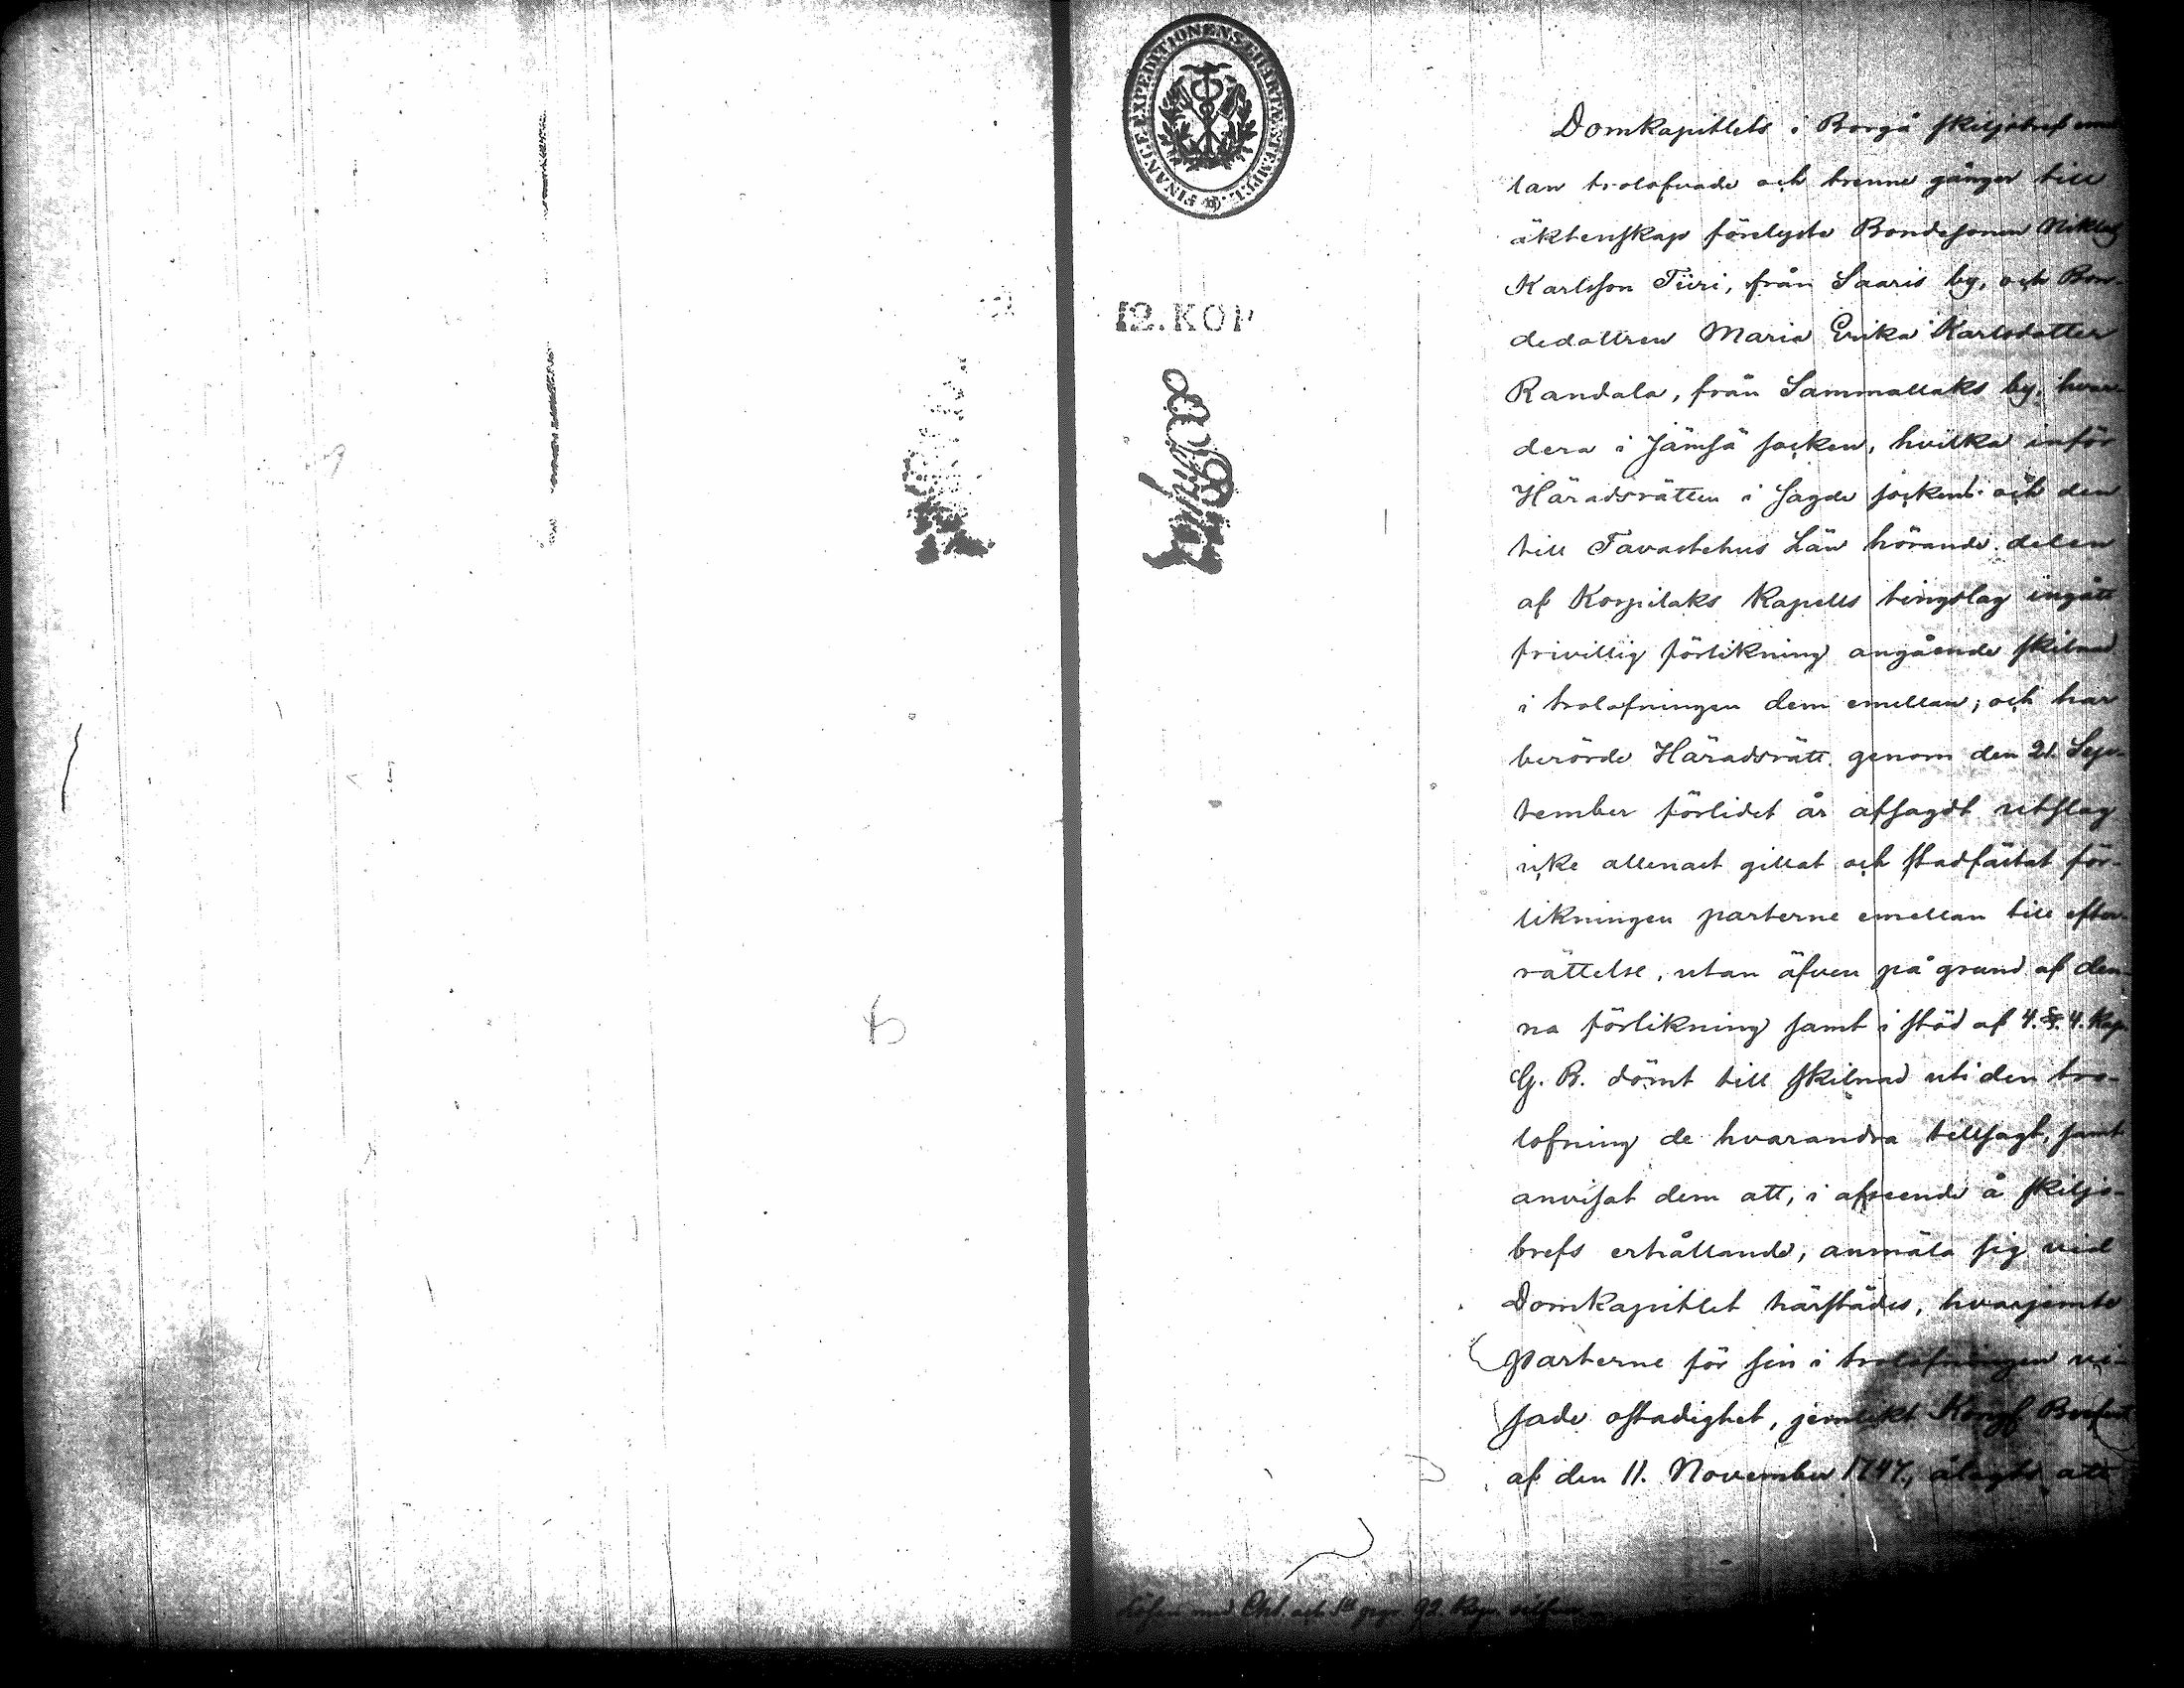 FINANCE EXPEDITIONENS CHARTÆ STEMPEL
12. KOP
Domkapitlets i Borgå skiljobref emel-
lan trolofvade och trenne gånger till
äktenskap förelyste Bondesonen Niklas
Karlsson Tiiri, från Saaris by, och Bon-
dedottren Maria Erika Karlsdotter
Randala, från Sammallaks by, hvar-
dera i Jämsä socken, hvilka inför
Häradsrätten i sagde sockens och den
till Tavastehus Län hörande delen
af Korpilaks Kapells tingslag ingått
frivillig förlikning angående skilnad
i trolofningen dem emellan; och har
berörde Häradsrätt genom den 21. Sep-
tember förlidet år afsagdt utslag
icke allenast gillat och stadfästat för-
likningen parterne emellan till efter-
rättelse, utan äfven på grund af den-
na förlikning samt i stöd af 4. §. 4. Kap.
G. B. dömt till skilnad uti den tro-
lofning de hvarandra tillsagt, samt
anvisat dem att, i afseende å skiljo-
brefs erhållande, anmäla sig vid
Domkapitlet härstädes, hvarjemte
parterne för sin i trolofningen vi-
sade ostadighet, jemlikt Kongl. Brefvet
af den 11. November 1747, ålagts att
Lösen med Chtæ och